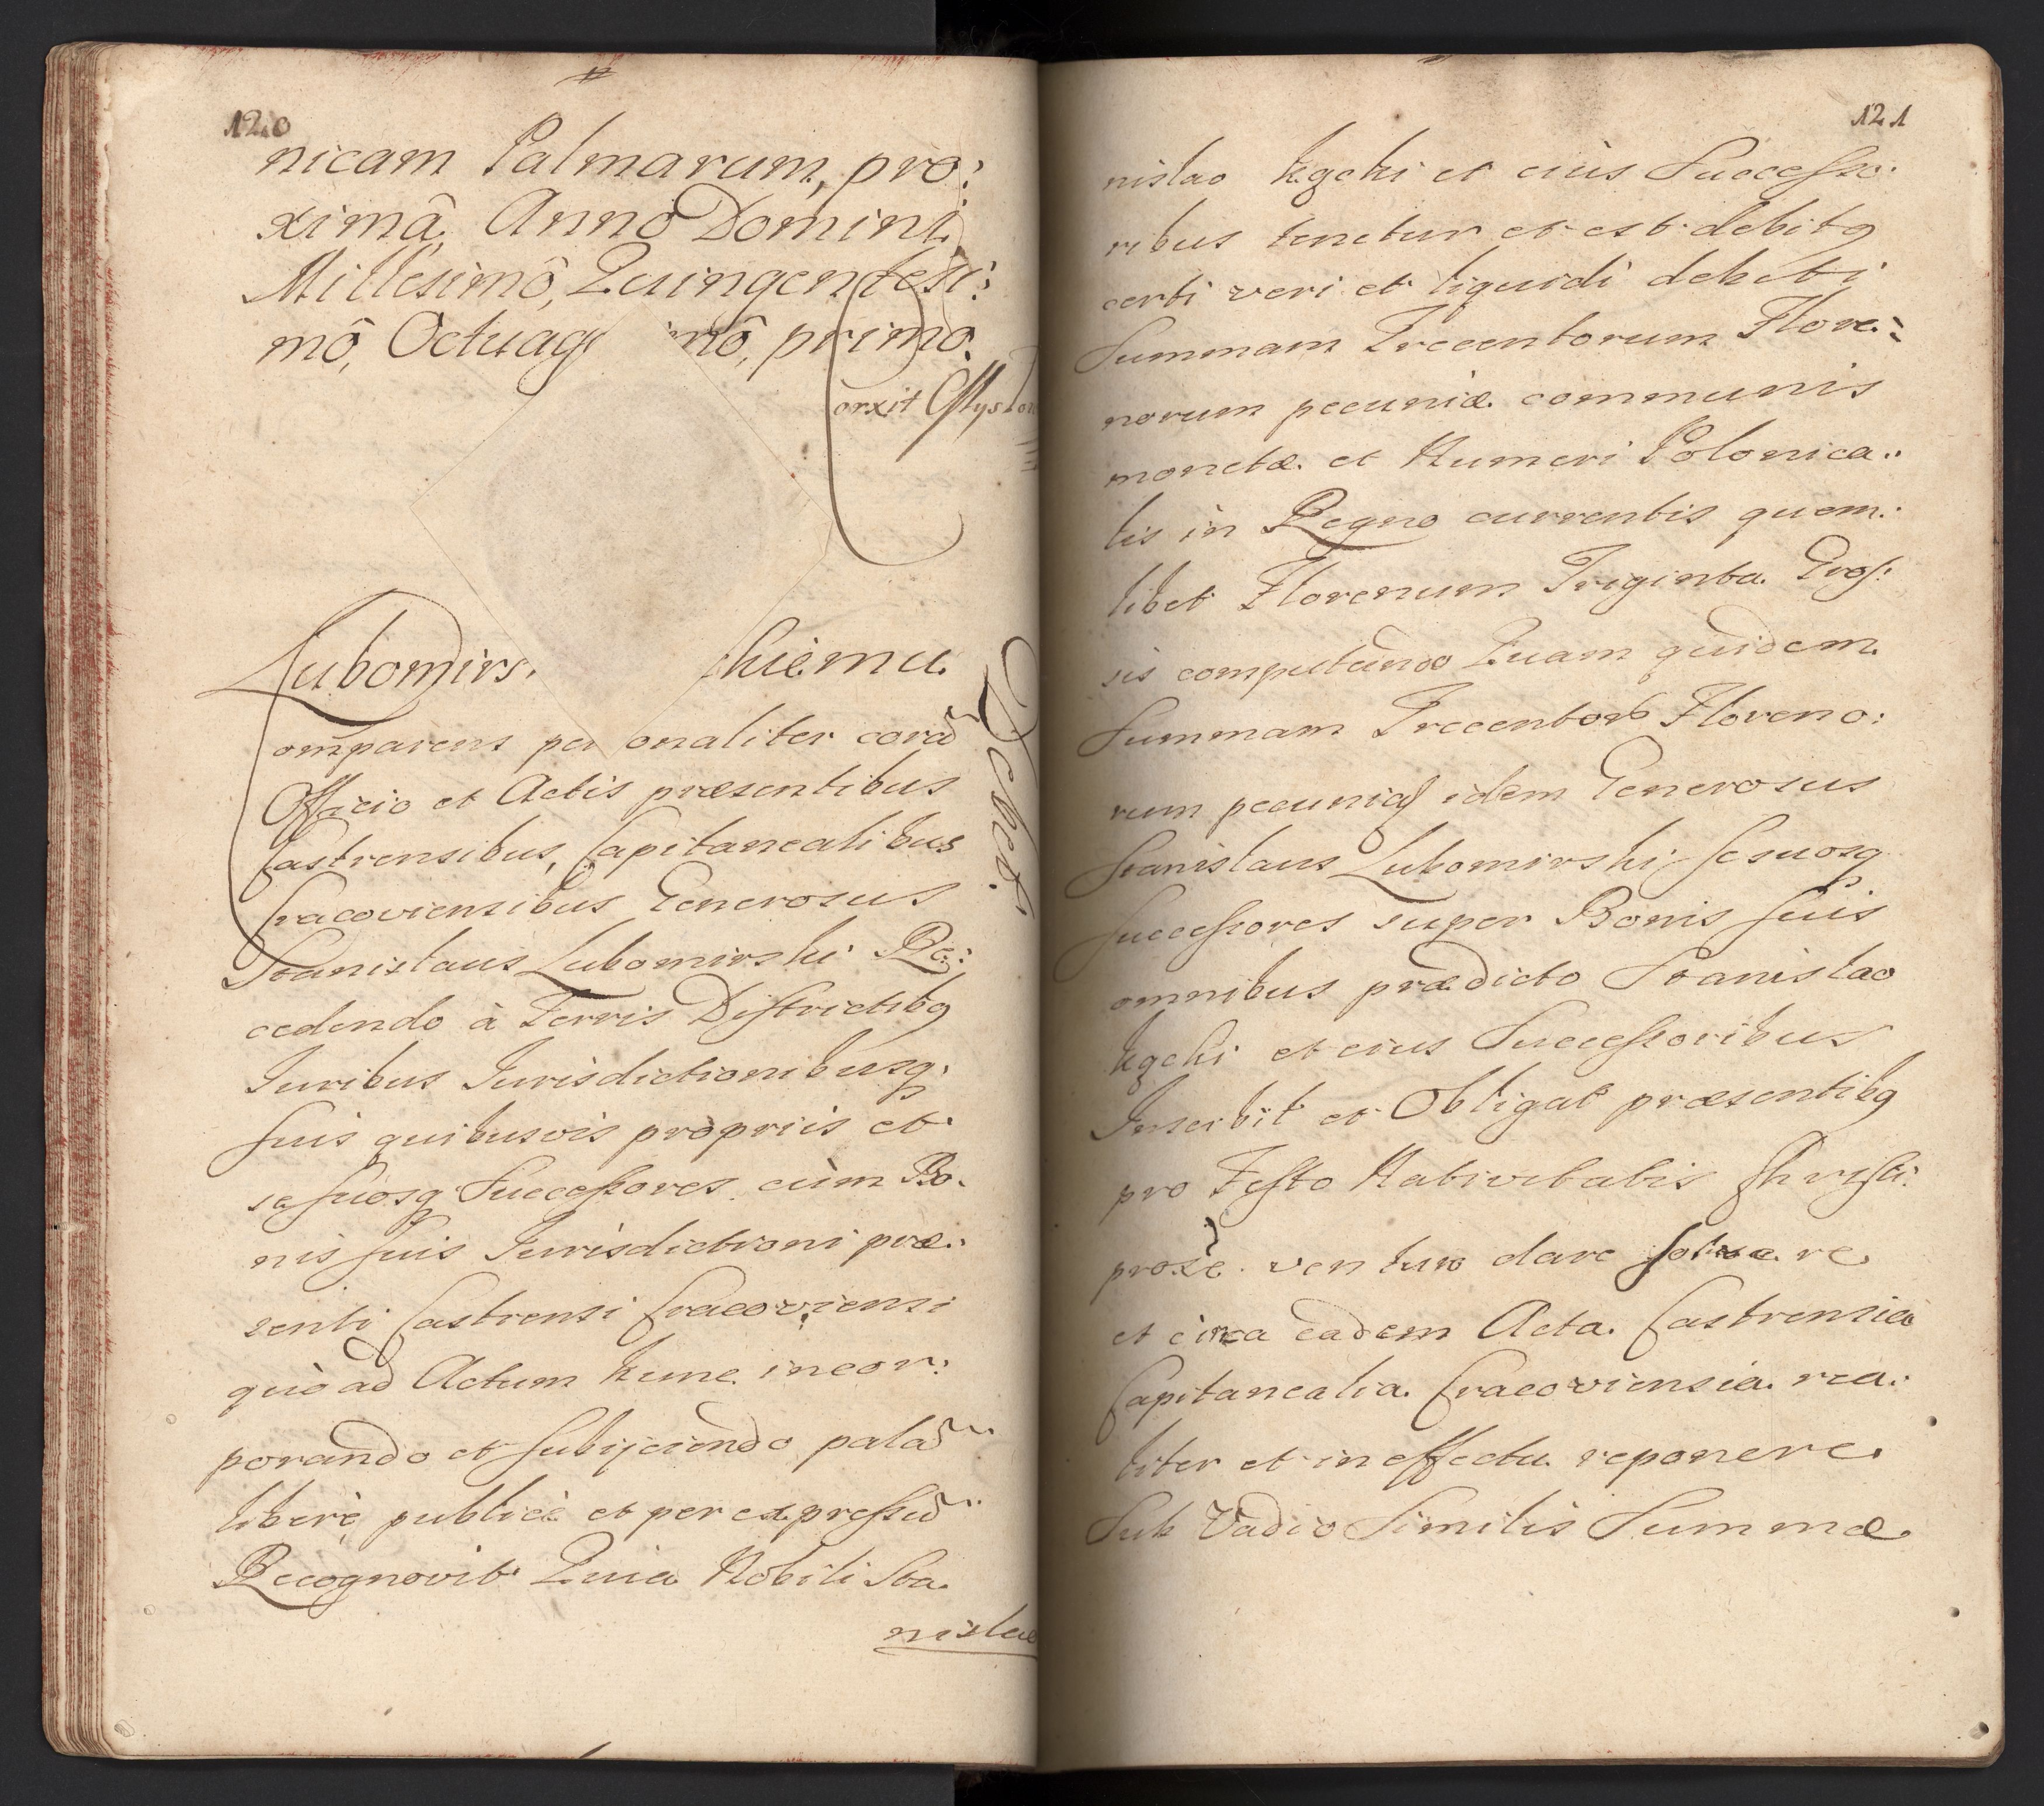 120
nicam Palmarum, pro:
ximâ, Anno Domini
Millesimô, Quingentesi:
mô, Octuag mô, primo.
orxit
Lubomirs. kiemu
omparens per onaliter corā
Officio et Actis præsentibus
Castrensibus, Capitanealibus
Cracoviensibus Generosus
Stanislaus Lubomirski Re:
cedendo à Terris Districtibq
Iuribus Iurisdictionibusq.
suis quibusvis propriis et
se suosq Successores cùm Bo.
nis suis Iurisdictioni præ.
senti Castrensi Cracoviensi
quò ad Actum hunc incor:
porando et subijciendo palā
liberè publicè et per expressū
Recognovit Quia Nobili Sta.
nislao
Debet.
121
nislao Kęcki et eius Successo.
ribus tenetur et est debitq
certi veri et liquidi debiti
Summam Trecentorum Flore:
norum pecuniæ communis
monetæ et Numeri Polonica.
lis in Regno currentis quem.
libet Florenum Triginta Gros:
sis computando Quam quidem
Summam Trecentor Floreno:
rum pecuniæ idem Generosus
Stanislaus Lubomirski se suosq
Successores super Bonis suis
omnibus prædicto Stanislao
Kęcki et eius Successoribus
Inscribit et Obligat præsentibq
pro Festo Nativitatis Christi:
proxe venturo dare solvere
et circa eadem Acta Castrensia
Capitanealia Cracoviensia rea.
liter et in effectu reponere.
Sub Vadio Similis Summæ.